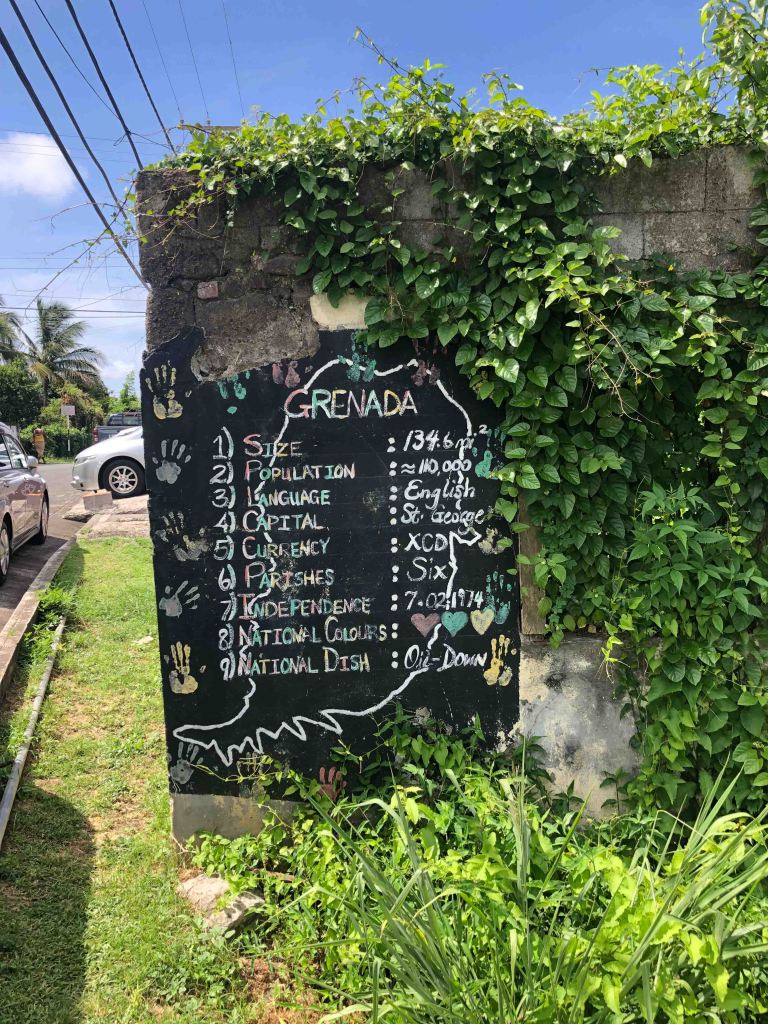 GRENADA
1) SIZE : 134.6 mi²
2) POPULATION : ≈ 110,000
3) LANGUAGE : English
4) CAPITAL : St. George
5) CURRENCY : XCD
6) PARISHES : Six
7) INDEPENDENCE : 7-02-1974
8) NATIONAL COLOURS :
9) NATIONAL DISH : OIL-DOWN